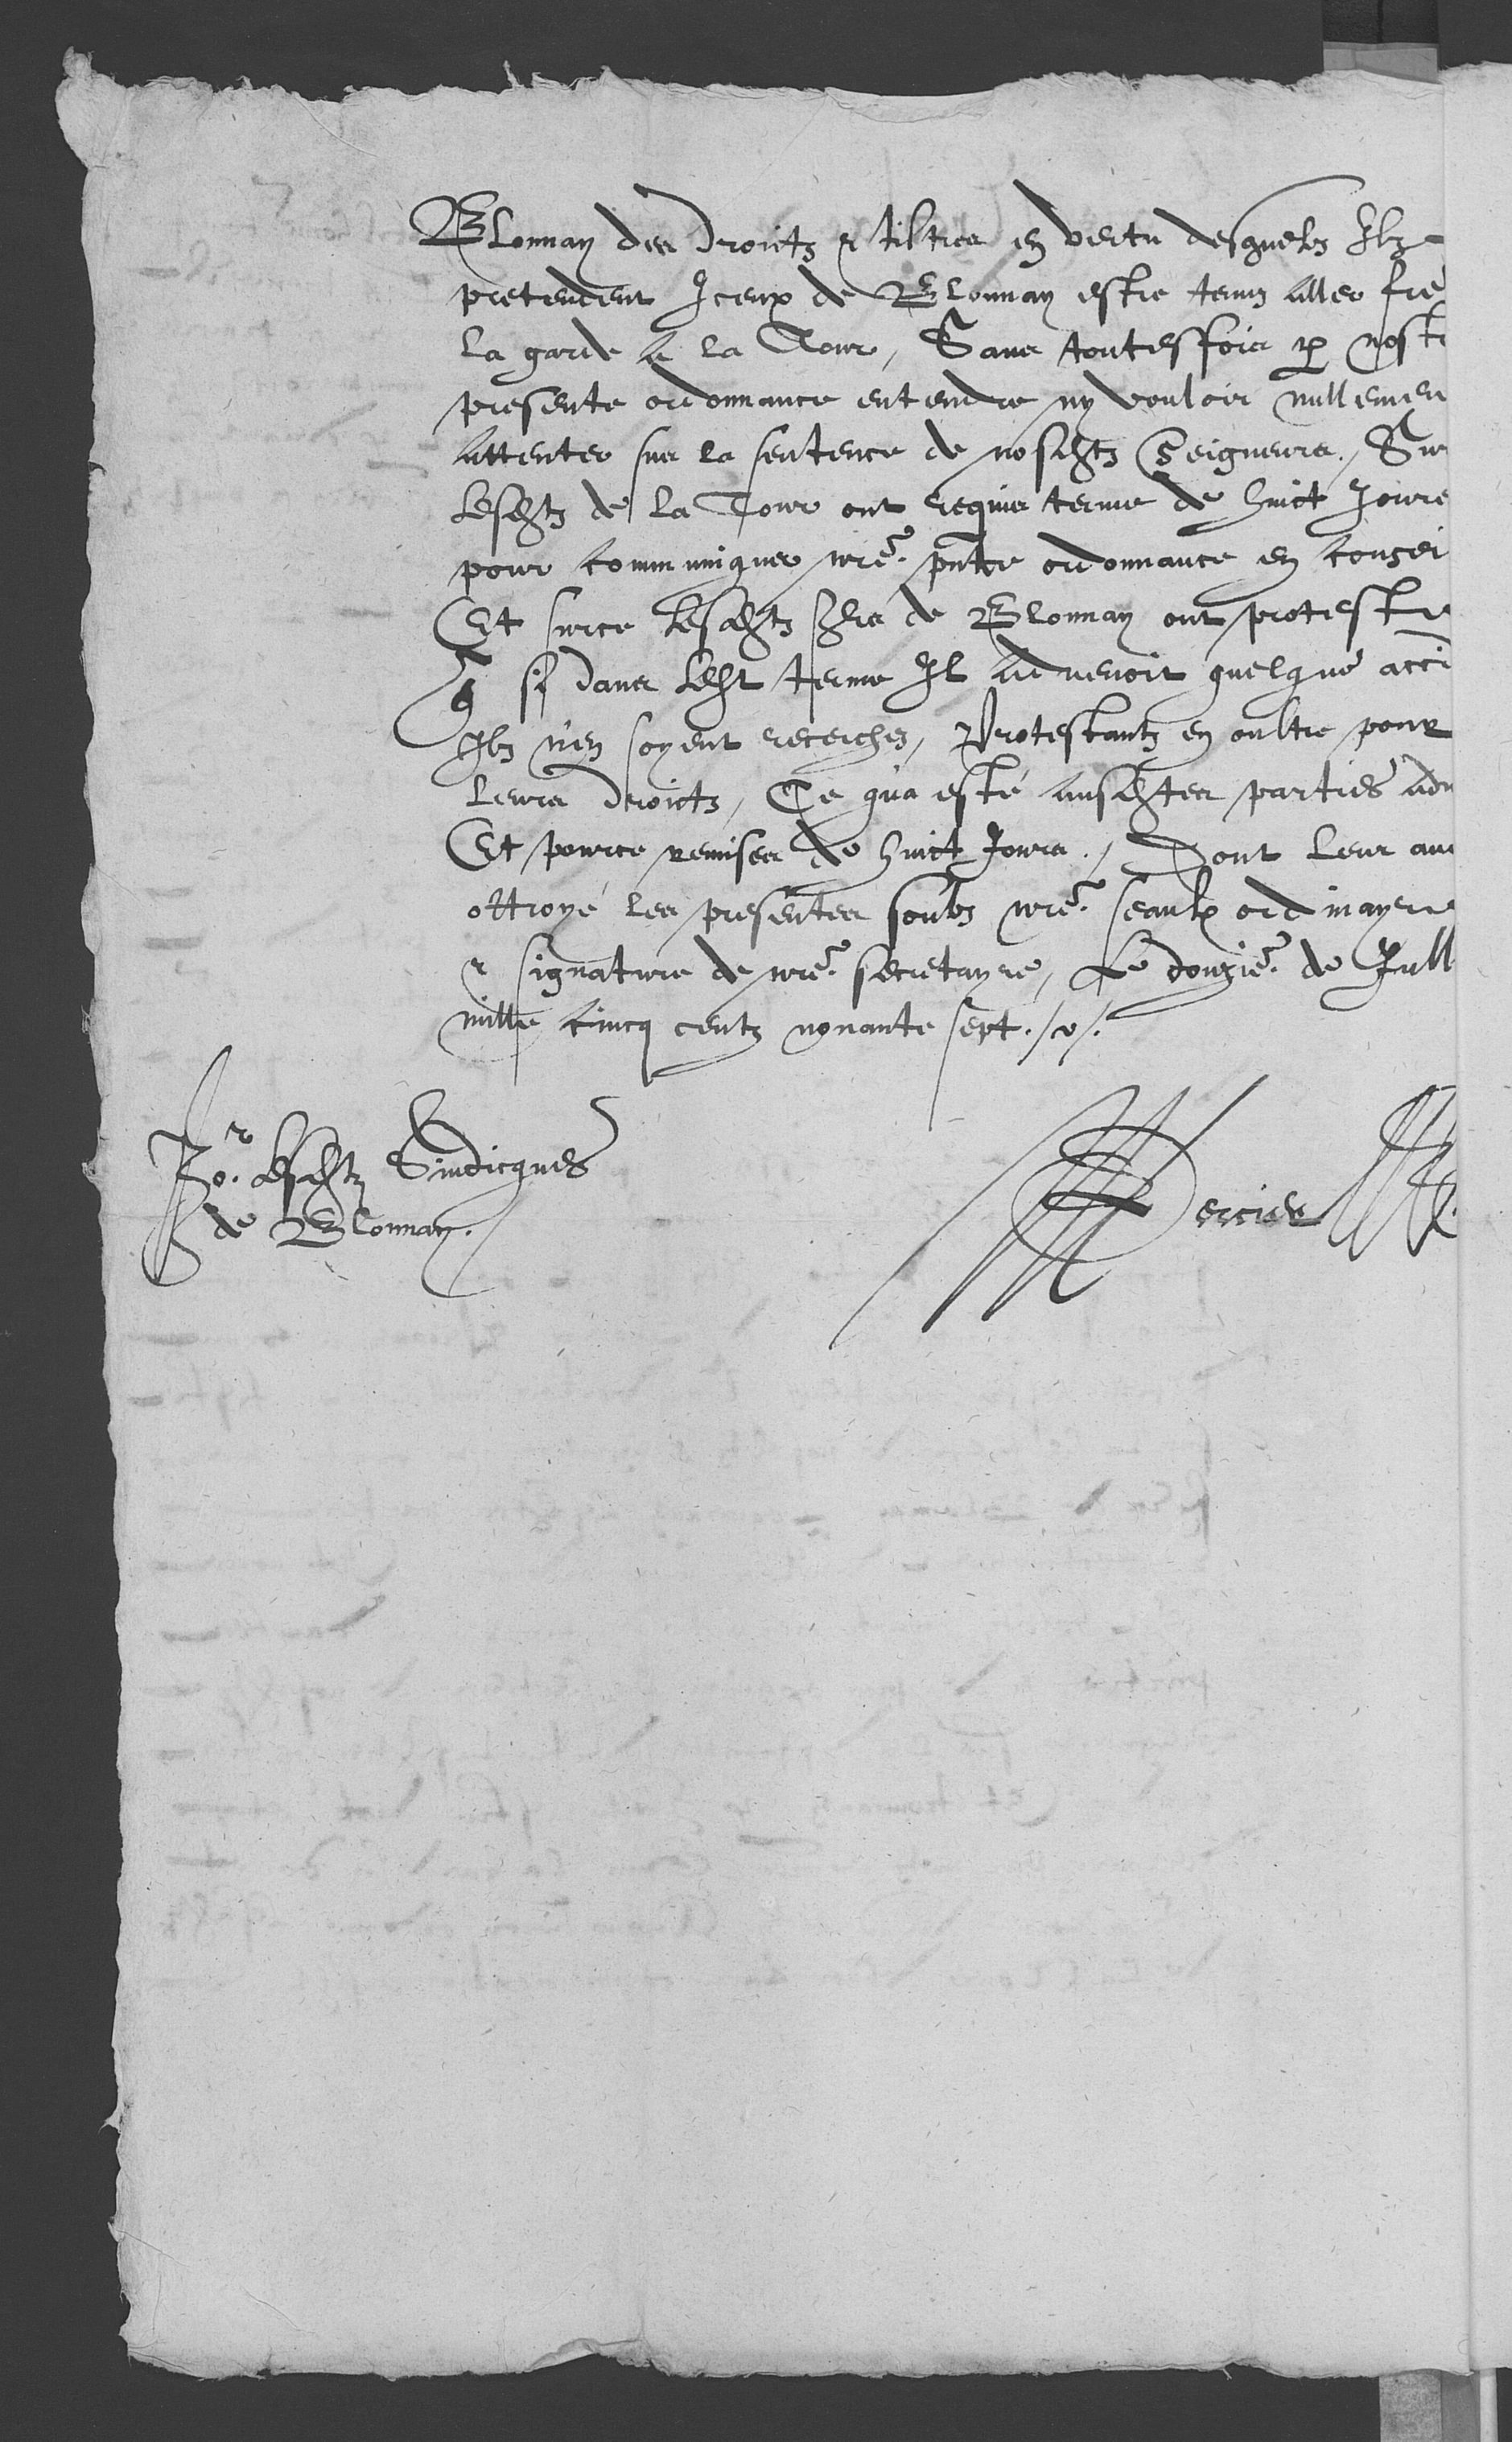 Blonnay des droictz & tiltres en vertu desquelz Ilz
pretendent Iceux de Blonnay estre tenuz aller fre
la garde a la Tour, Sans toutesfois p nost
presente ordonnance entendre ny vouloir nullemen
attenter sus la sentence de nosdtz Seigneurs. Sur
Lesdtz de la Tour ont requis terme de huict Jours
pour communiquer nre. pnte ordonnance en consei
Et surce Lesdtz de Blonnay ont proteste
q si dans ledt terme Il advenoit quelque acci
Ilz n'en soyent recerchez, Protestantz en oultre pour
leurs droictz, Ce qu'a esté ausdtes parties adv
Et pource remises de huict Jours. Dont leur av
ottroyé les presentes soubz nre. seaulx ordinayre
& signature de nre. secretayre, Le douzie. de Jull
mille cincq centz nonante sept.
Po.r lesdtz Sindicques
de Blonnay.